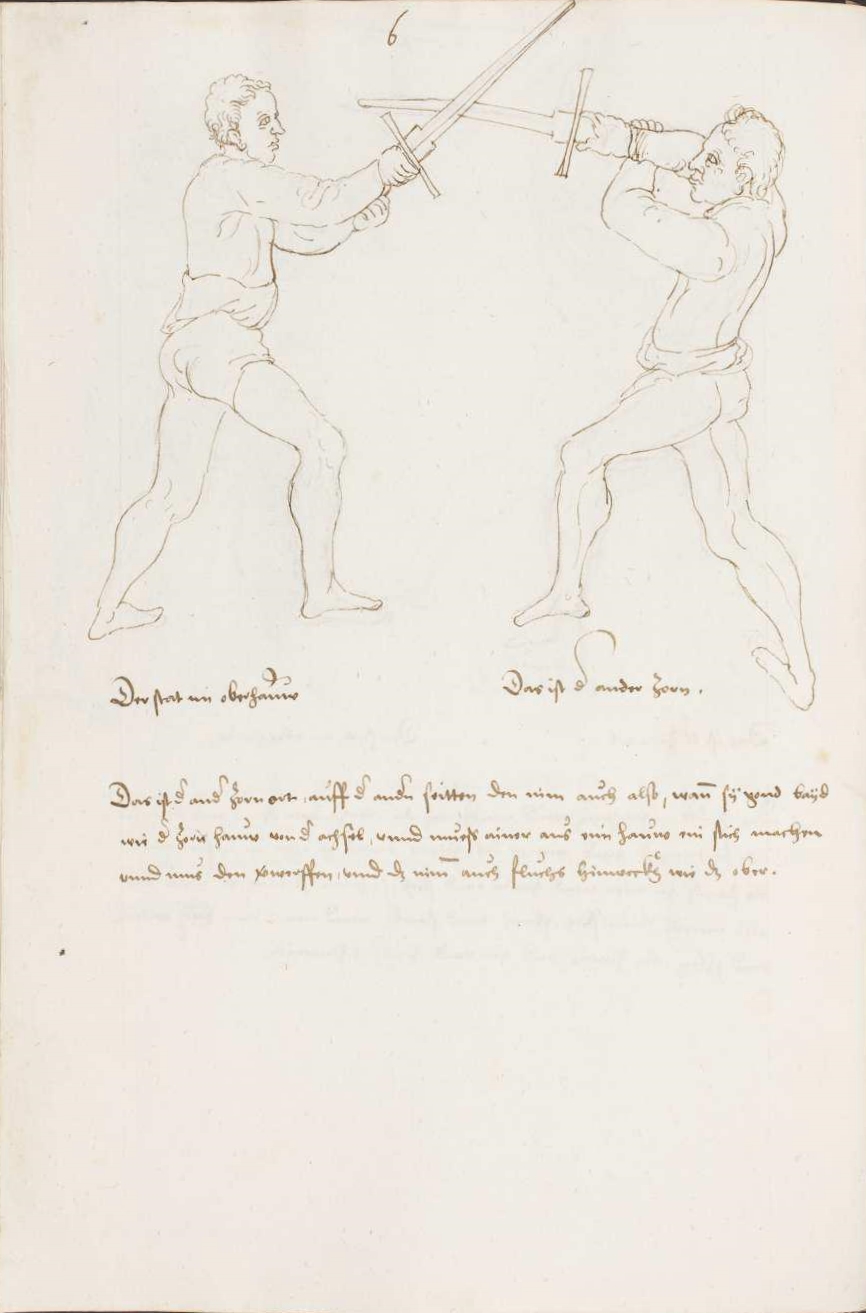 6
Der stat im oberhauw
Das ist d ander zorn.
Das ist d and zornort, auff d andn seitten den nim auch also, wan sy gend bayd
wie d zorn hauw von d achsel, vnnd muess ainer aus eim hauw ein stich machen
vnnd mus den verwerffen, vnd dz nim auch fluchs hinweckh wie dz ober.